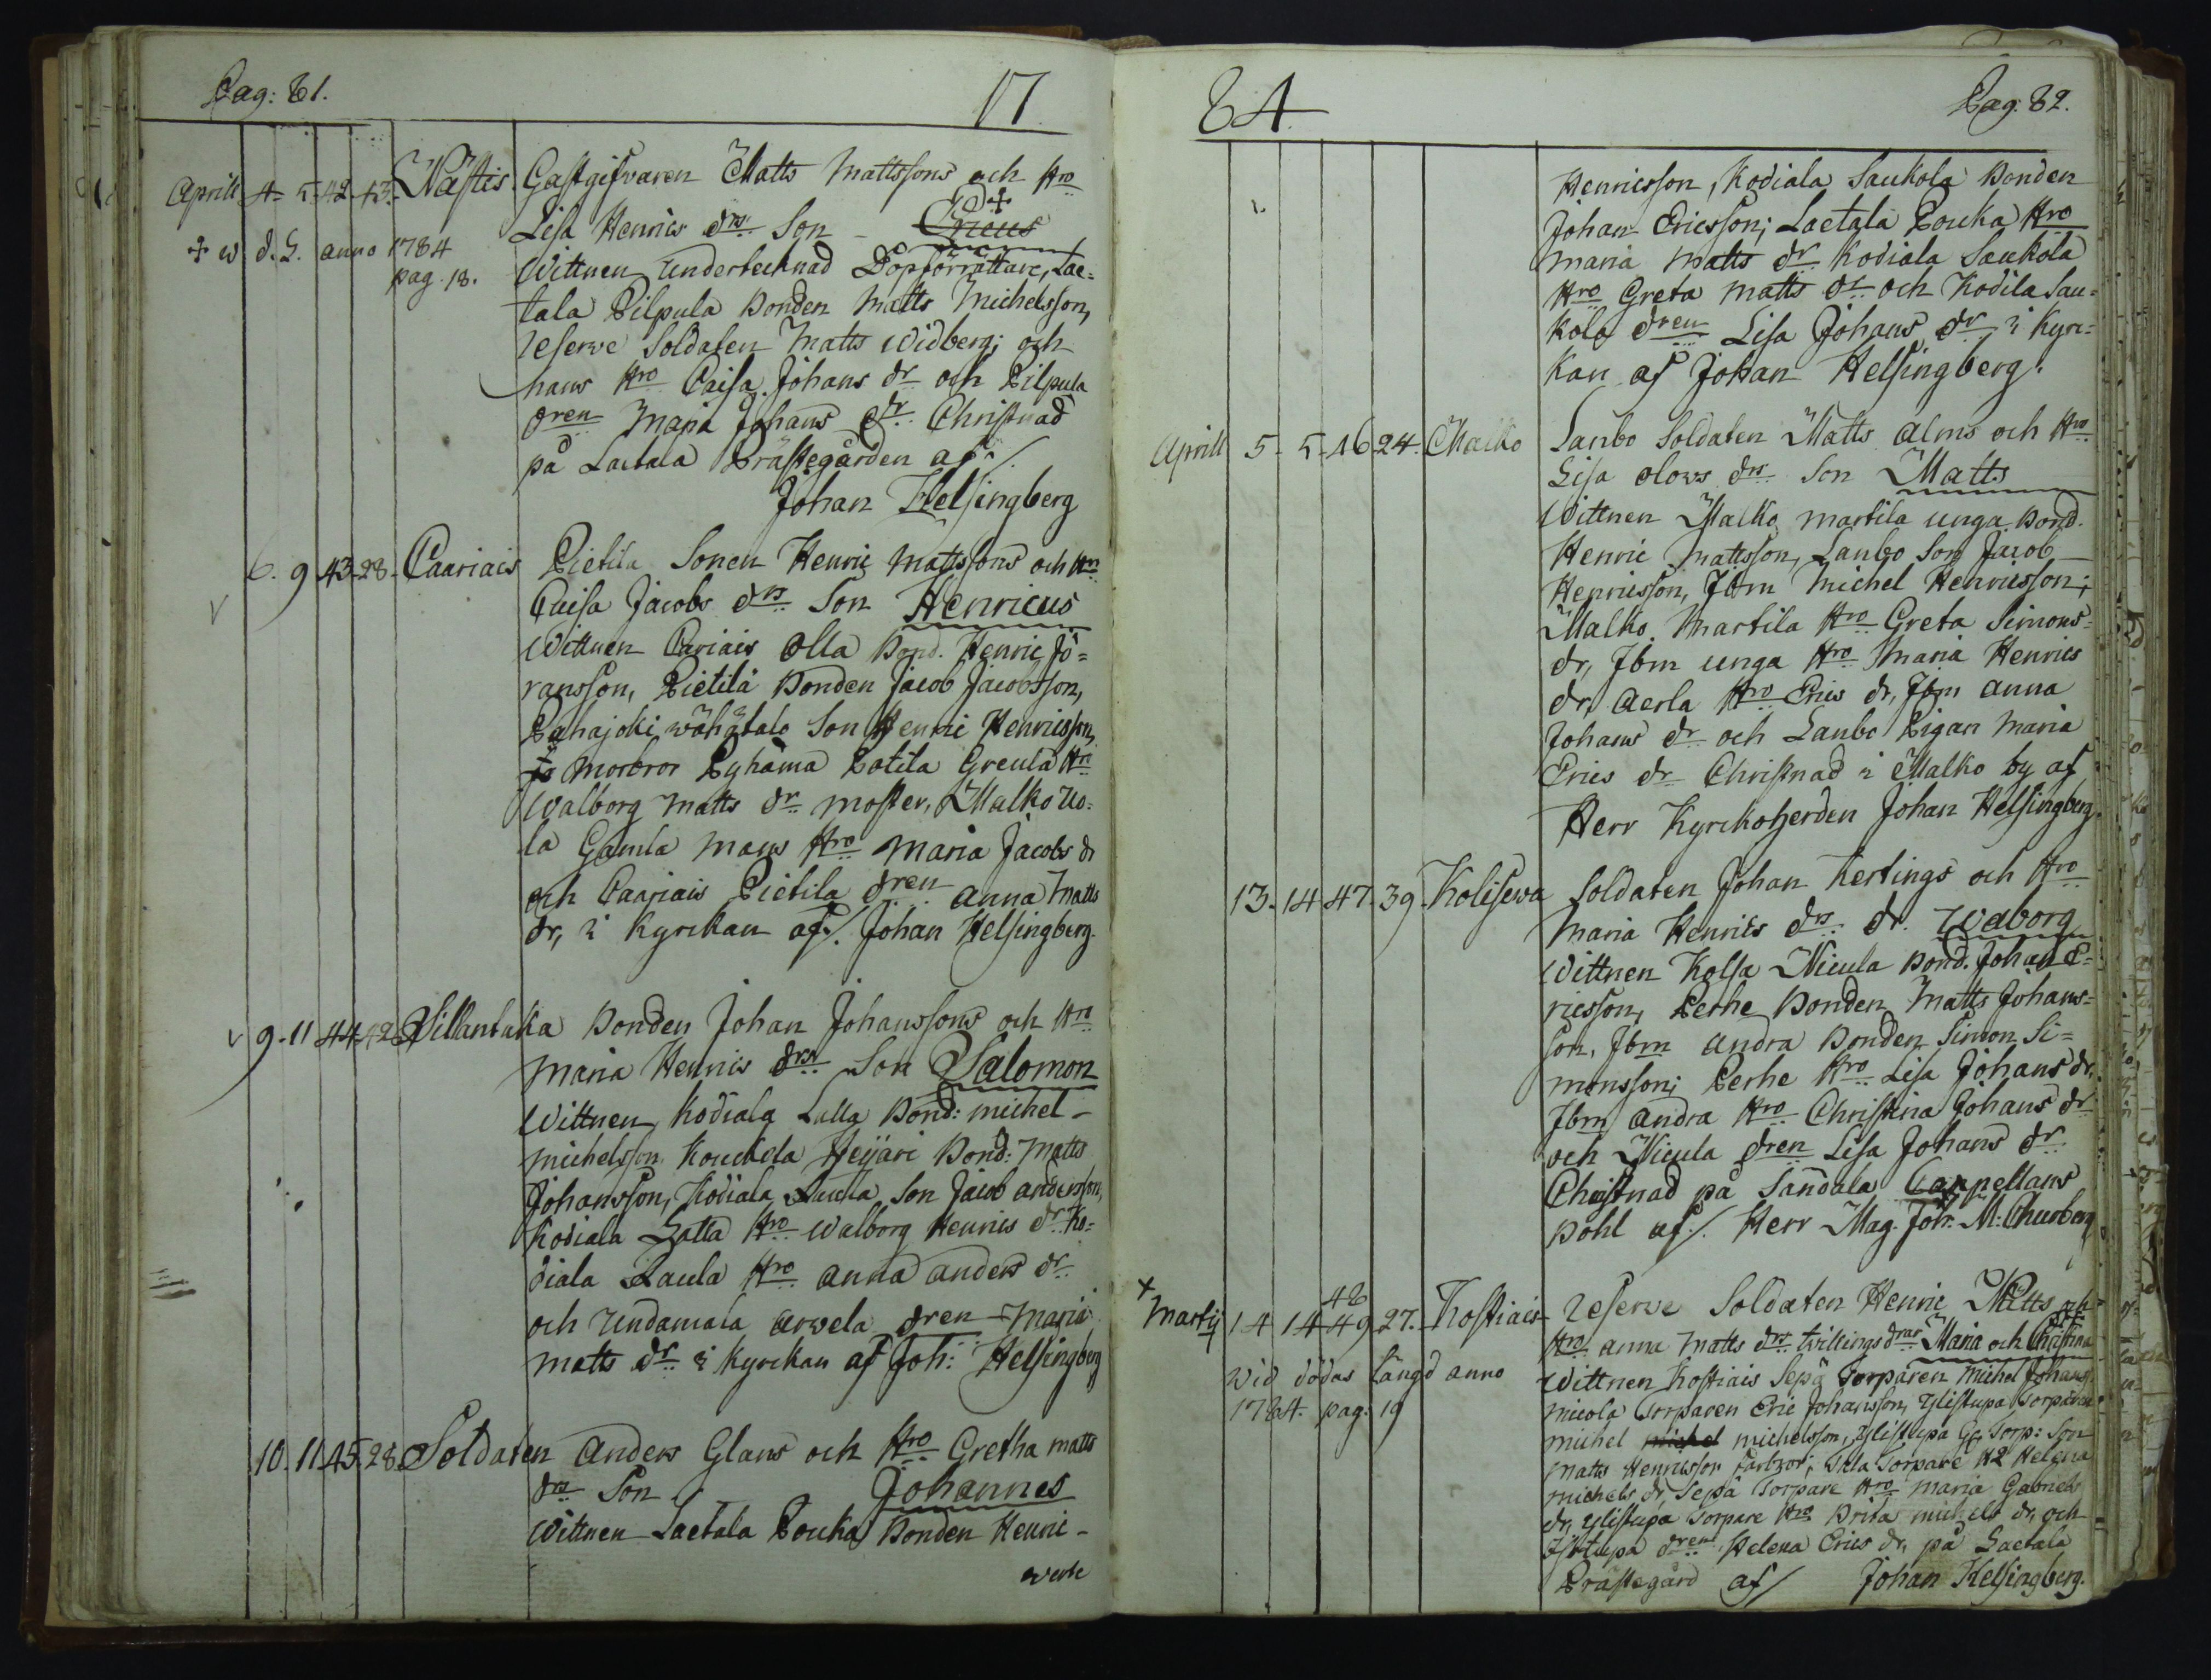 Pag: 81.
17
Aprill 4- 5-42-43. Nastis Gästgifvaren Matts Mattssons och Hro
Lisa Henrics drs. Son - Ericus
+ w d. L. anno 1784
pag. 18.
Wittnen Undertecknad Döpförrättare, Lae=
tala Pilpula Bonden Matts Michelsson,
reserve Soldaten Matts Widberg; och
hans Hro Caisa Johans dr och Pilpula
dren Maria Johans dr Christnad
på Laetala Prästegården af ./.
Johan Helsingberg
6. 9 43-28- Caariais Pietila Sonen Henric Mattssons och Hro
Caisa Jacobs drs Son Henricus
Wittnen Cariais Olla Bond. Henric Jö=
ransson, Pietilä Bonden Jacob Jacobsson,
Pahajoki wähätalo Son Henric Henricsson,
morbror Pyhäma Potila Greula Hro
Walborg Matts dr moster, Malko Uo=
la Gamla mans Hro Maria Jacobs dr
och Caariais Pietila dren anna Matts
dr, i Kyrckan af ./. Johan Helsingberg.
9-11 44-42 Sillantaka Bonden Johan Johanssons och Hro
Maria Henrics drs Son Salomon
Wittnen, Kodiala Lalla Bond: Michel-
Michelsson Bond: Matts
Johansson, Kodiala Son Jacob andersson,
Kodiala Latta Hro Walborg Henrics dr Ko=
diala Paula Hro anna anders dr
och Undamala arwela dren Maria
matts dr i Kyrckan af Joh: Helsingberg
10. 11. 45. 28. Soldaten Anders Glans och Hro Gretha matts
drs Son Johannes
Wittnen Laetala Pouka Bonden Henric-
verte
84.
Pag. 82.
Henricsson, Kodiala Saukola Bonden
Johan Ericsson; Laetala Pouka Hro
Maria Matts dr Kodiala Saukola
Hro Greta Matts dr och Kodila Sau=
kola dren Lisa Johans dr i Kyrc=
kan af Johan Helsingberg.
Aprill 5- 5-46 24. Malko Lanbo Soldaten Matts Alms och Hro
Lisa Olovs drs Son Matts
Wittnen Malko Martila unga Bond.
Henric Mattsson, Lanbo Son Jacob
Henricsson, Ibm Michel Henricsson;
Malko Martila Hro Greta Simons=
dr, Ibm unga Hro Maria Henrics
dr, Aerla Hro Erics dr, Ibm Anna
Johans dr och Lanbo Pigan Maria
Erics dr Christnad i Malko by af
Herr Kyrckoherden Johan Helsingberg.
13. 14 47. 39. Kolisewa Soldaten Johan Kertings och Hro
Maria Henrics drs dr. Waborg
Wittnen Kolsa Nicula Bond. Johan E=
ricsson, Perhe Bonden Matts Johans=
son, Ibm andra Bonden Simon Si=
monsson; Perhe Hro Lisa Johans dr,
Ibm andra Hro Christina Johans dr
och Nicula dren Lisa Johans dr
Christnad på Sandala Cappellans
Bohl af ./. Herr Mag. Joh: M: Churberg
+
48
Martij 14 14 49 27. Kostiais reserve Soldaten Henric och
Hro Anna Matts drs twillings drar Maria och Christina
wid dödas längd anno
1784. pag. 19
Wittnen Kostiais Sepä Torparen Michel Johans.
Nicola Torparen Eric Johansson, Ylistupa Torparen
Michel michel Michelsson, Ylistupa Torp: Son
Matts Henricsson Torpare H2 Helena
Michels dr, Sepä Torpare Hro Maria Gabriels
dr, Ylistupa Torpare Hro Brita Michels dr, och
dren Helena Erics dr, på Laetala
Prästegård af/ Johan Helsingberg.